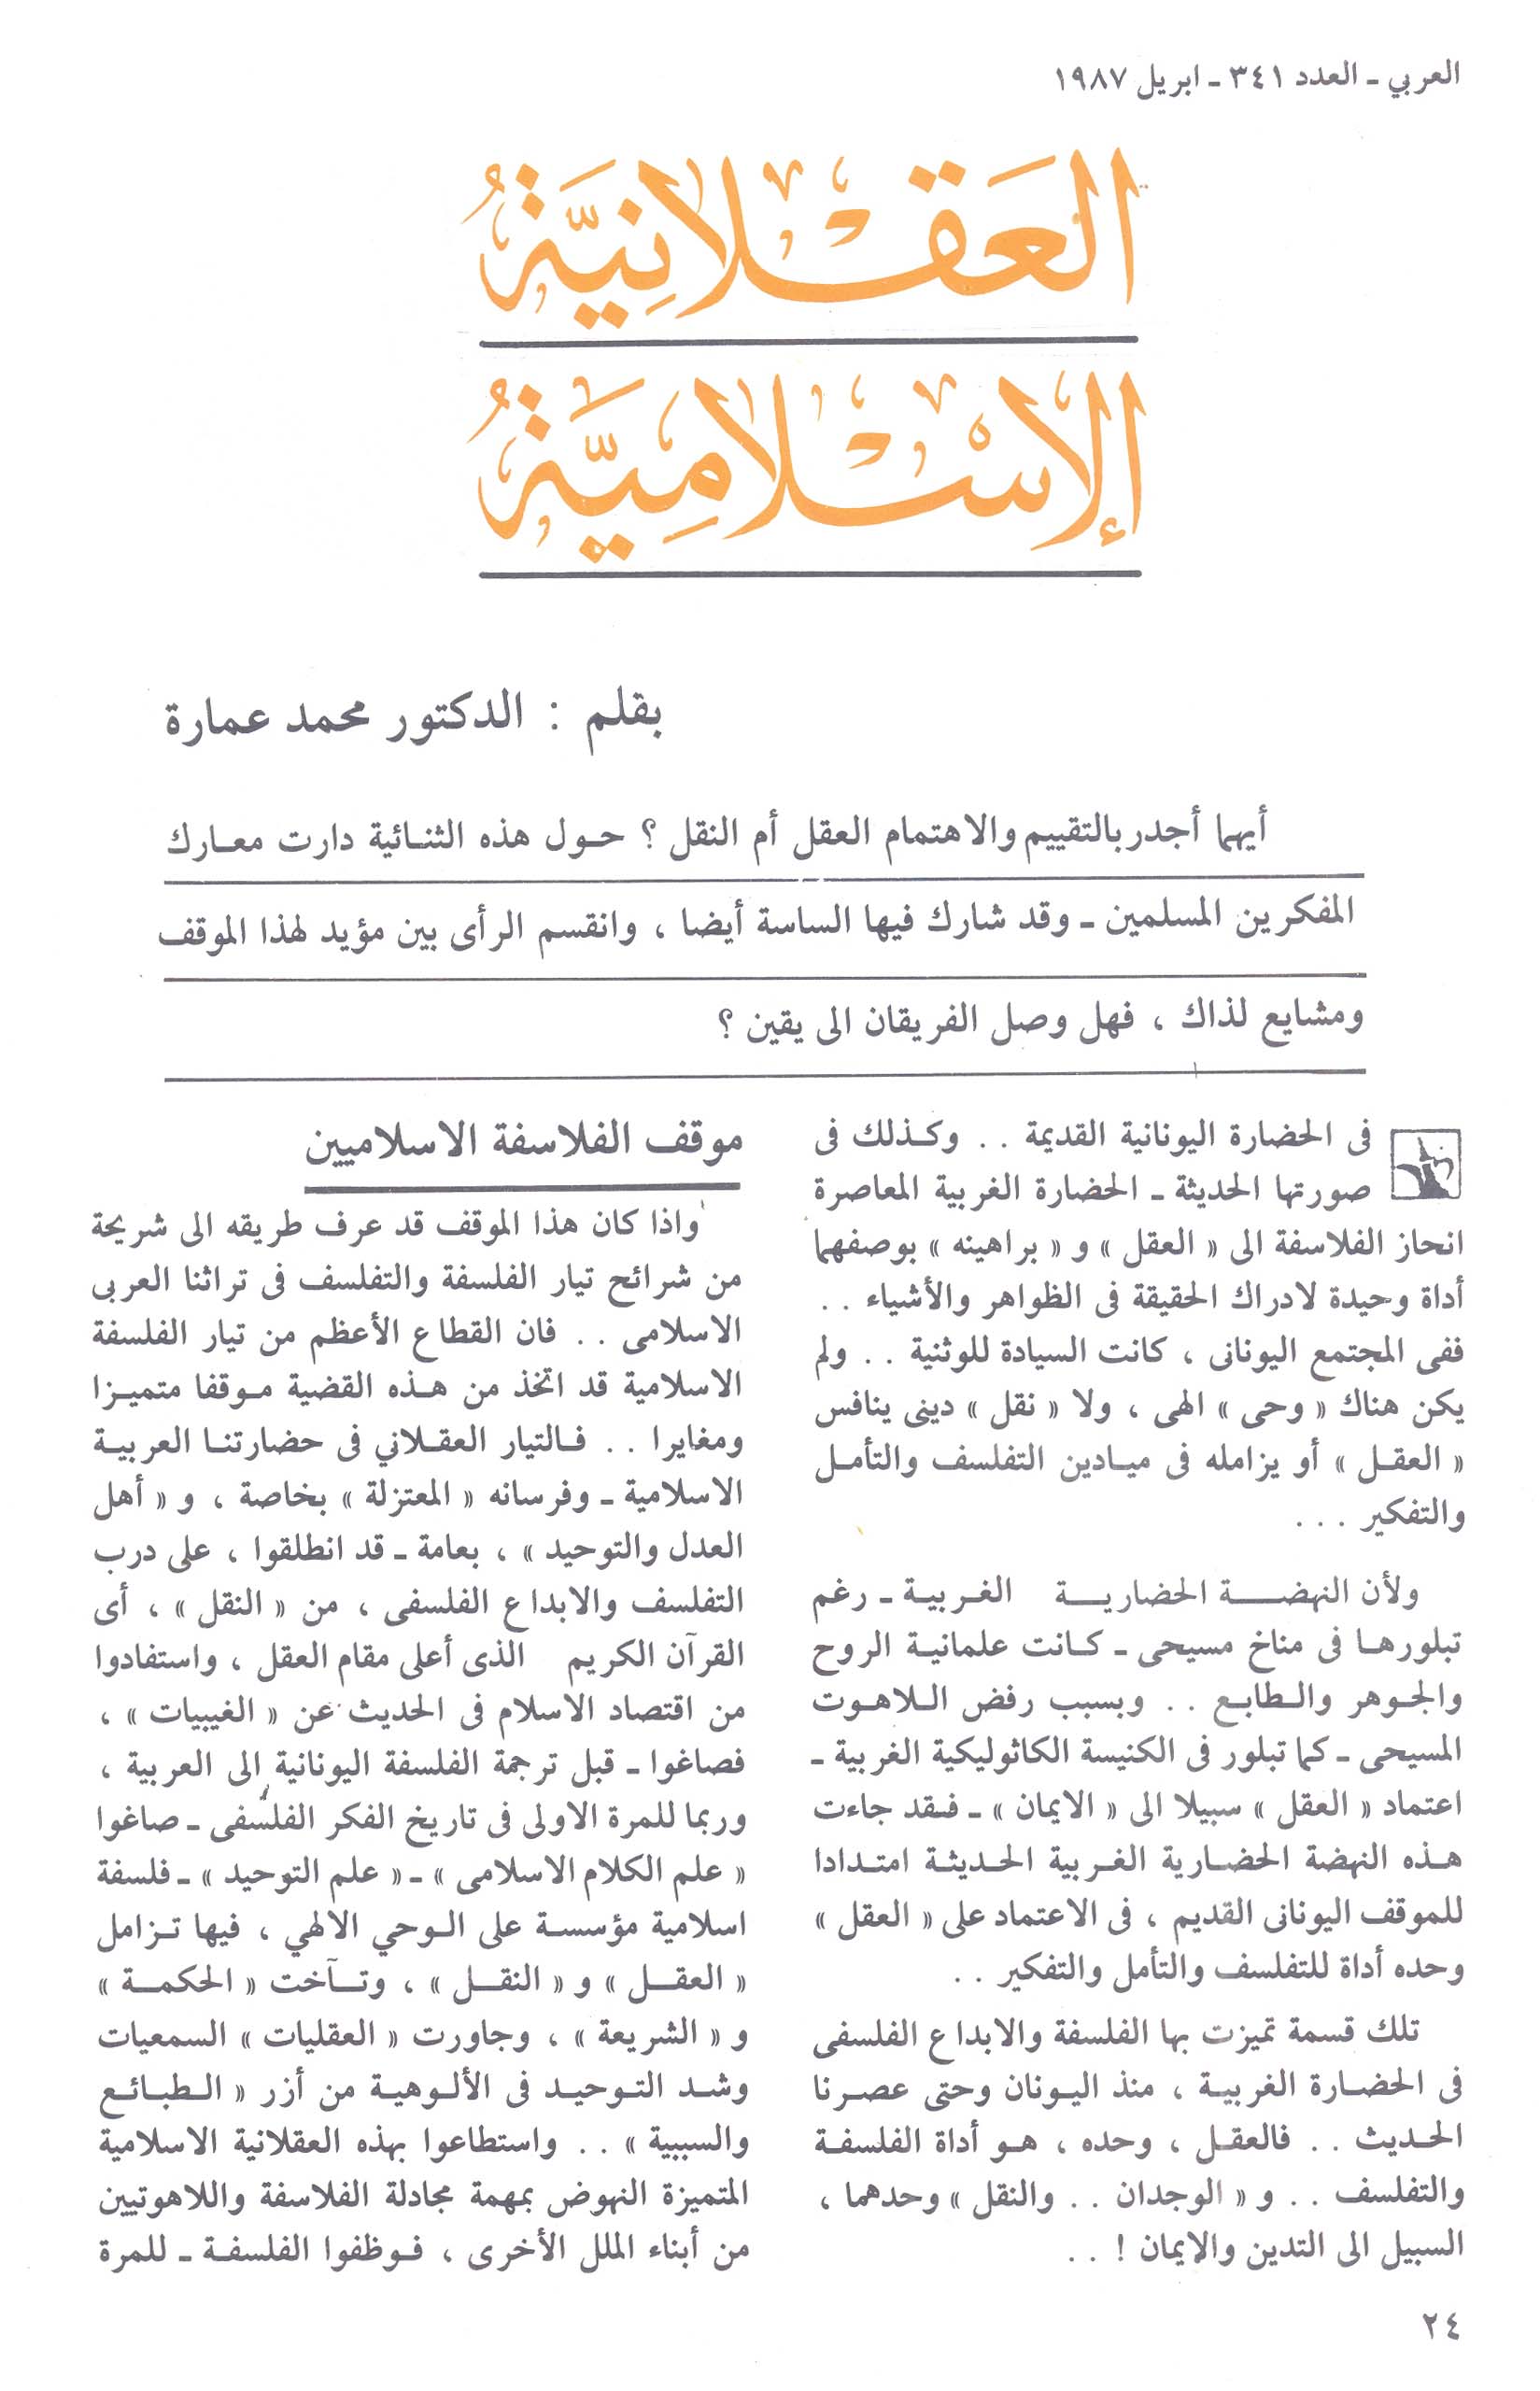 العربي - العدد ٣٤١ - ابريل ١٩٨٧
العَقْلانِيَّةُ
الإسْلامِيَّةُ
بقلم : الدكتور محمد عمارة
أيهما أجدر بالتقييم والاهتمام العقل أم النقل ؟ حول هذه الثنائية دارت معارك
المفكرين المسلمين - وقد شارك فيها الساسة أيضا ، وانقسم الرأى بين مؤيد لهذا الموقف
ومشايع لذاك ، فهل وصل الفريقان الى يقين ؟
فى الحضارة اليونانية القديمة . . وكذلك فى
صورتها الحديثة - الحضارة الغربية المعاصرة
انحاز الفلاسفة الى « العقل » و « براهينه » بوصفهما
أداة وحيدة لادراك الحقيقة فى الظواهر والأشياء . .
ففى المجتمع اليونانى ، كانت السيادة للوثنية . . ولم
يكن هناك « وحى » الهى ، ولا « نقل » دينى ينافس
« العقل » أو يزامله فى ميادين التفلسف والتأمل
والتفكير . . .
ولأن النهضة الحضارية الغربية - رغم
تبلورها فى مناخ مسيحى - كانت علمانية الروح
والجوهر والطابع . . وبسبب رفض اللاهوت
المسيحى - كما تبلور فى الكنيسة الكاثوليكية الغربية -
اعتماد « العقل » سبيلا الى « الايمان » - فقد جاءت
هذه النهضة الحضارية الغربية الحديثة امتدادا
للموقف اليونانى القديم ، فى الاعتماد على « العقل »
وحده أداة للتفلسف والتأمل والتفكير . .
تلك قسمة تميزت بها الفلسفة والابداع الفلسفى
فى الحضارة الغربية ، منذ اليونان وحتى عصرنا
الحديث . . فالعقل ، وحده ، هو أداة الفلسفة
والتفلسف . . و « الوجدان . . والنقل » وحدهما ،
السبيل الى التدين والايمان ! . .
موقف الفلاسفة الاسلاميين
واذا كان هذا الموقف قد عرف طريقه الى شريحة
من شرائح تيار الفلسفة والتفلسف فى تراثنا العربى
الاسلامى . . فان القطاع الأعظم من تيار الفلسفة
الاسلامية قد اتخذ من هذه القضية موقفا متميزا
ومغايرا . . فالتيار العقلاني فى حضارتنا العربية
الاسلامية - وفرسانه « المعتزلة » بخاصة ، و « أهل
العدل والتوحيد » ، بعامة - قد انطلقوا ، على درب
التفلسف والابداع الفلسفى ، من « النقل » ، أى
القرآن الكريم الذى أعلى مقام العقل ، واستفادوا
من اقتصاد الاسلام فى الحديث عن « الغيبيات » ،
فصاغوا - قبل ترجمة الفلسفة اليونانية إلى العربية ،
وربما للمرة الاولى فى تاريخ الفكر الفلسفى - صاغوا
« علم الكلام الاسلامى » - « علم التوحيد » - فلسفة
اسلامية مؤسسة على الوحي الالهي ، فيها تزامل
« العقل » و « النقل » ، وتآخت « الحكمة »
و « الشريعة » ، وجاورت « العقليات » السمعيات
وشد التوحيد فى الألوهية من أزر « الطبائع
والسببية » . . واستطاعوا بهذه العقلانية الاسلامية
المتميزة النهوض بمهمة مجادلة الفلاسفة واللاهوتيين
من أبناء الملل الأخرى ، فوظفوا الفلسفة - للمرة
٢٤